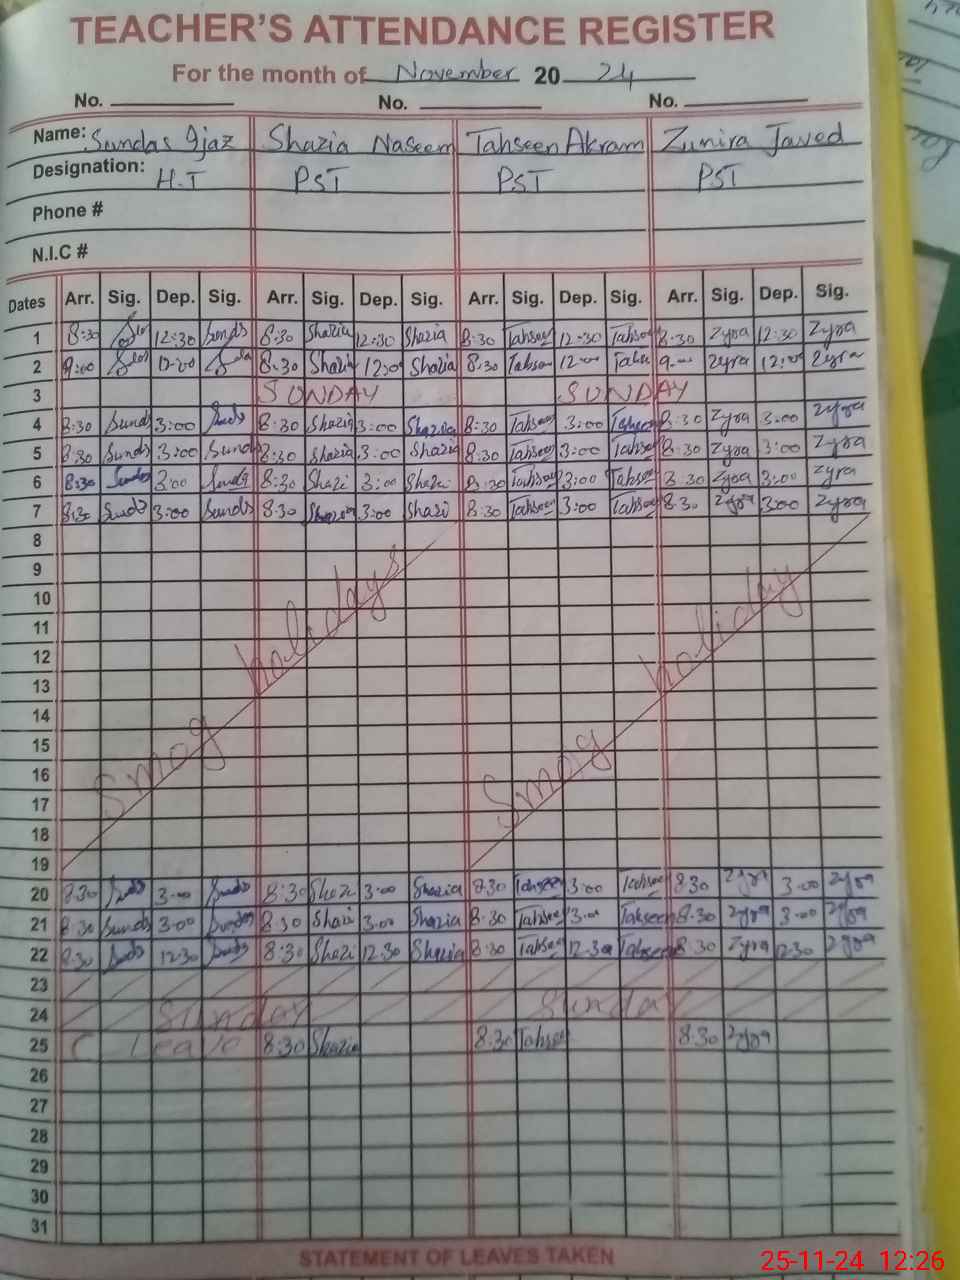 TEACHER'S ATTENDANCE REGISTER
For the month of November 20 24
No. No. No.
Name: Sundas Ijaz Shazia Naseem Tahseen Akram Zunira Javed
Designation: H.T PST PST PST
Phone #
N.I.C #
Dates Arr. Sig. Dep. Sig. Arr. Sig. Dep. Sig. Arr. Sig. Dep. Sig. Arr. Sig. Dep. Sig.
1 8:30 12:30 Sunds 8:30 Shazia 12:30 Shazia 8:30 Tahseen 12:30 Tahseen 8:30 Zyra 12:30 Zyra
2 9:00 12:00 8:30 Shazia 12:00 Shazia 8:30 Tahseen 12:00 9:00 Zyra 12:00 Zyra
3 SUNDAY SUNDAY
4 8:30 Sunds 3:00 Sunds 8:30 Shazia 3:00 Shazia 8:30 Tahseen 3:00 Tahseen 8:30 Zyra 3:00 Zyra
5 8:30 Sunds 3:00 Sunds 8:30 Shazia 3:00 Shazia 8:30 Tahseen 3:00 Tahseen 8:30 Zyra 3:00 Zyra
6 8:30 Sunds 3:00 Sunds 8:30 Shazi 3:00 Shazi 8:30 Tahseen 3:00 Tahseen 8:30 Zyra 3:00 Zyra
7 8:30 Sunds 3:00 Sunds 8:30 Shazia 3:00 Shazi 8:30 Tahseen 3:00 Tahseen 8:30 Zyra 3:00 Zyra
8
9
10
11
12
13
14
15
16
17
18
19
Smog holidays Smog holiday
20 8:30 Sunds 3:00 Sunds 8:30 Shazi 3:00 Shazia 8:30 Tahseen 3:00 Tahseen 8:30 Zyra 3:00 Zyra
21 8:30 Sunds 3:00 Sundas 8:30 Shazi 3:00 Shazia 8:30 Tahseen 3:00 Tahseen 8:30 Zyra 3:00 Zyra
22 8:30 Sunds 12:30 Sunds 8:30 Shazi 12:30 Shazia 8:30 Tahseen 12:30 Tahseen 8:30 Zyra 12:30 Zyra
23
24 Sunday Sunday
25 C Leave 8:30 Shazia 8:30 Tahseen 8:30 Zyra
26
27
28
29
30
31
STATEMENT OF LEAVES TAKEN
25-11-24 12:26